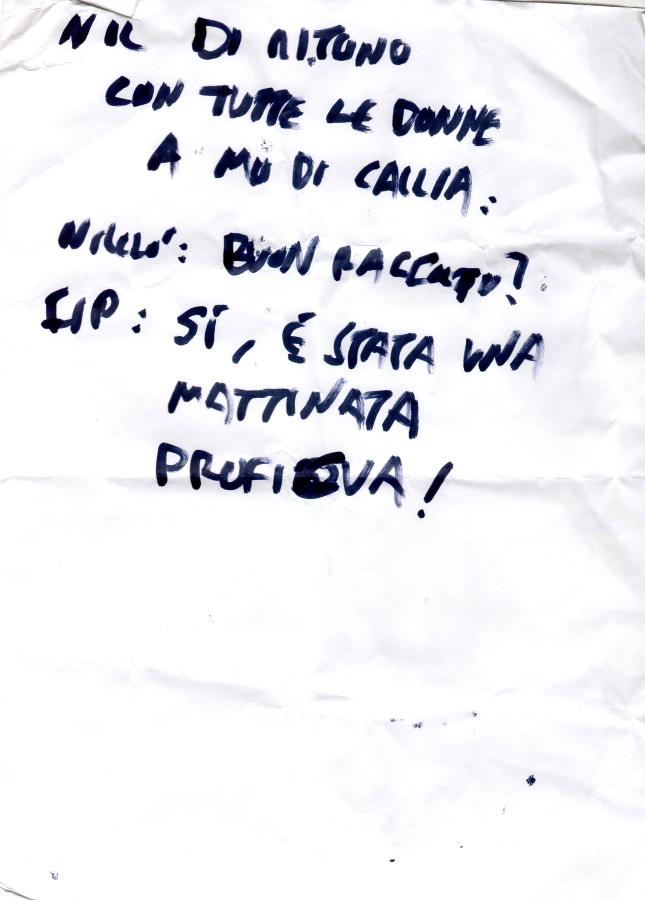 NIC DI RITONO
CON TUTTE LE DONNE
A MO DI CACCIA:
NICCLO': BUON RACCOLTO?
CIP: SÌ, È STATA UNA
MATTINATA
PROFICUA!